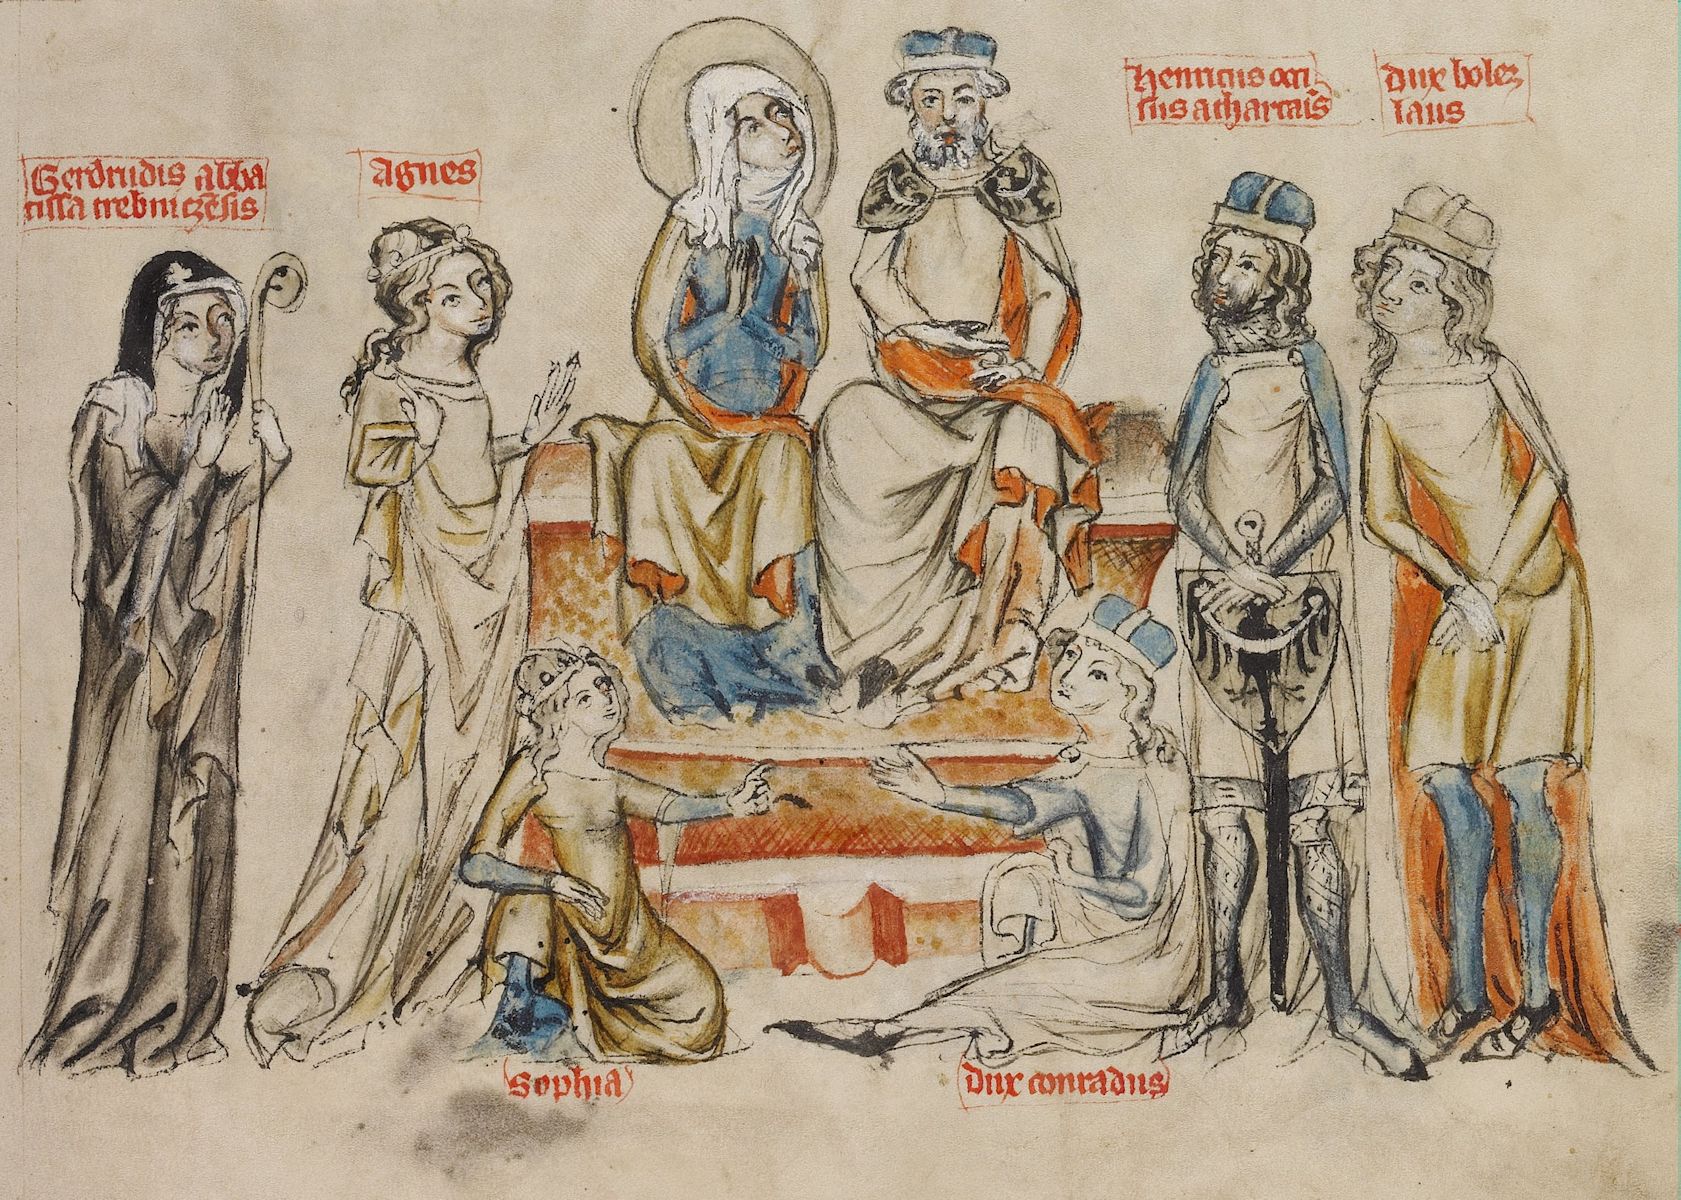 Gerdrudis abba
tissa trebniczēsis
Agnes
henricus occi
sus a thartaris̄
dux bolez
laus
Sophia
dux conradus